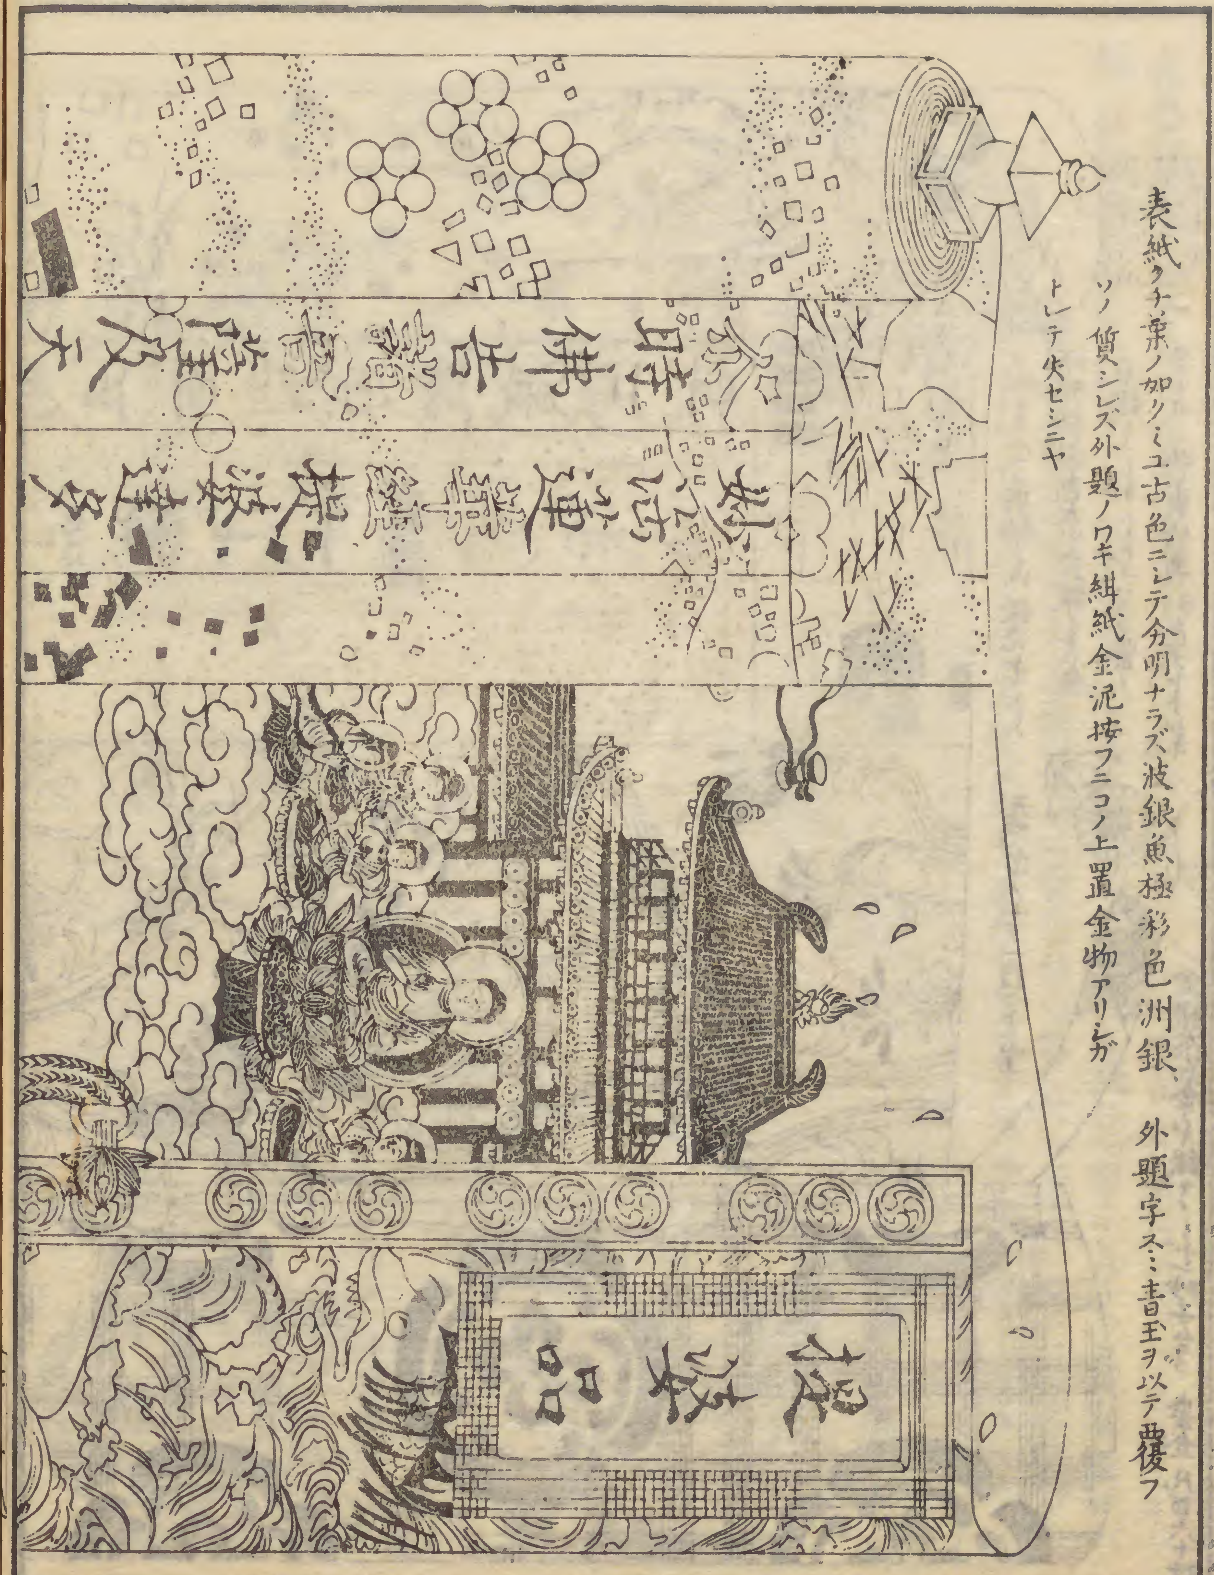 表紙クチ葉ノ如クミユ古色ニシテ分明ナラズ波銀魚極彩色洲銀　外題字スミ書玉ヲ以テ覆フ
ソノ質シレズ外題ノワキ紺紙金泥按フニコノ上置金物アリシガ
トレテ失セシニヤ
妙法蓮華経提婆達多
爾時佛告諸菩薩及天
提婆品